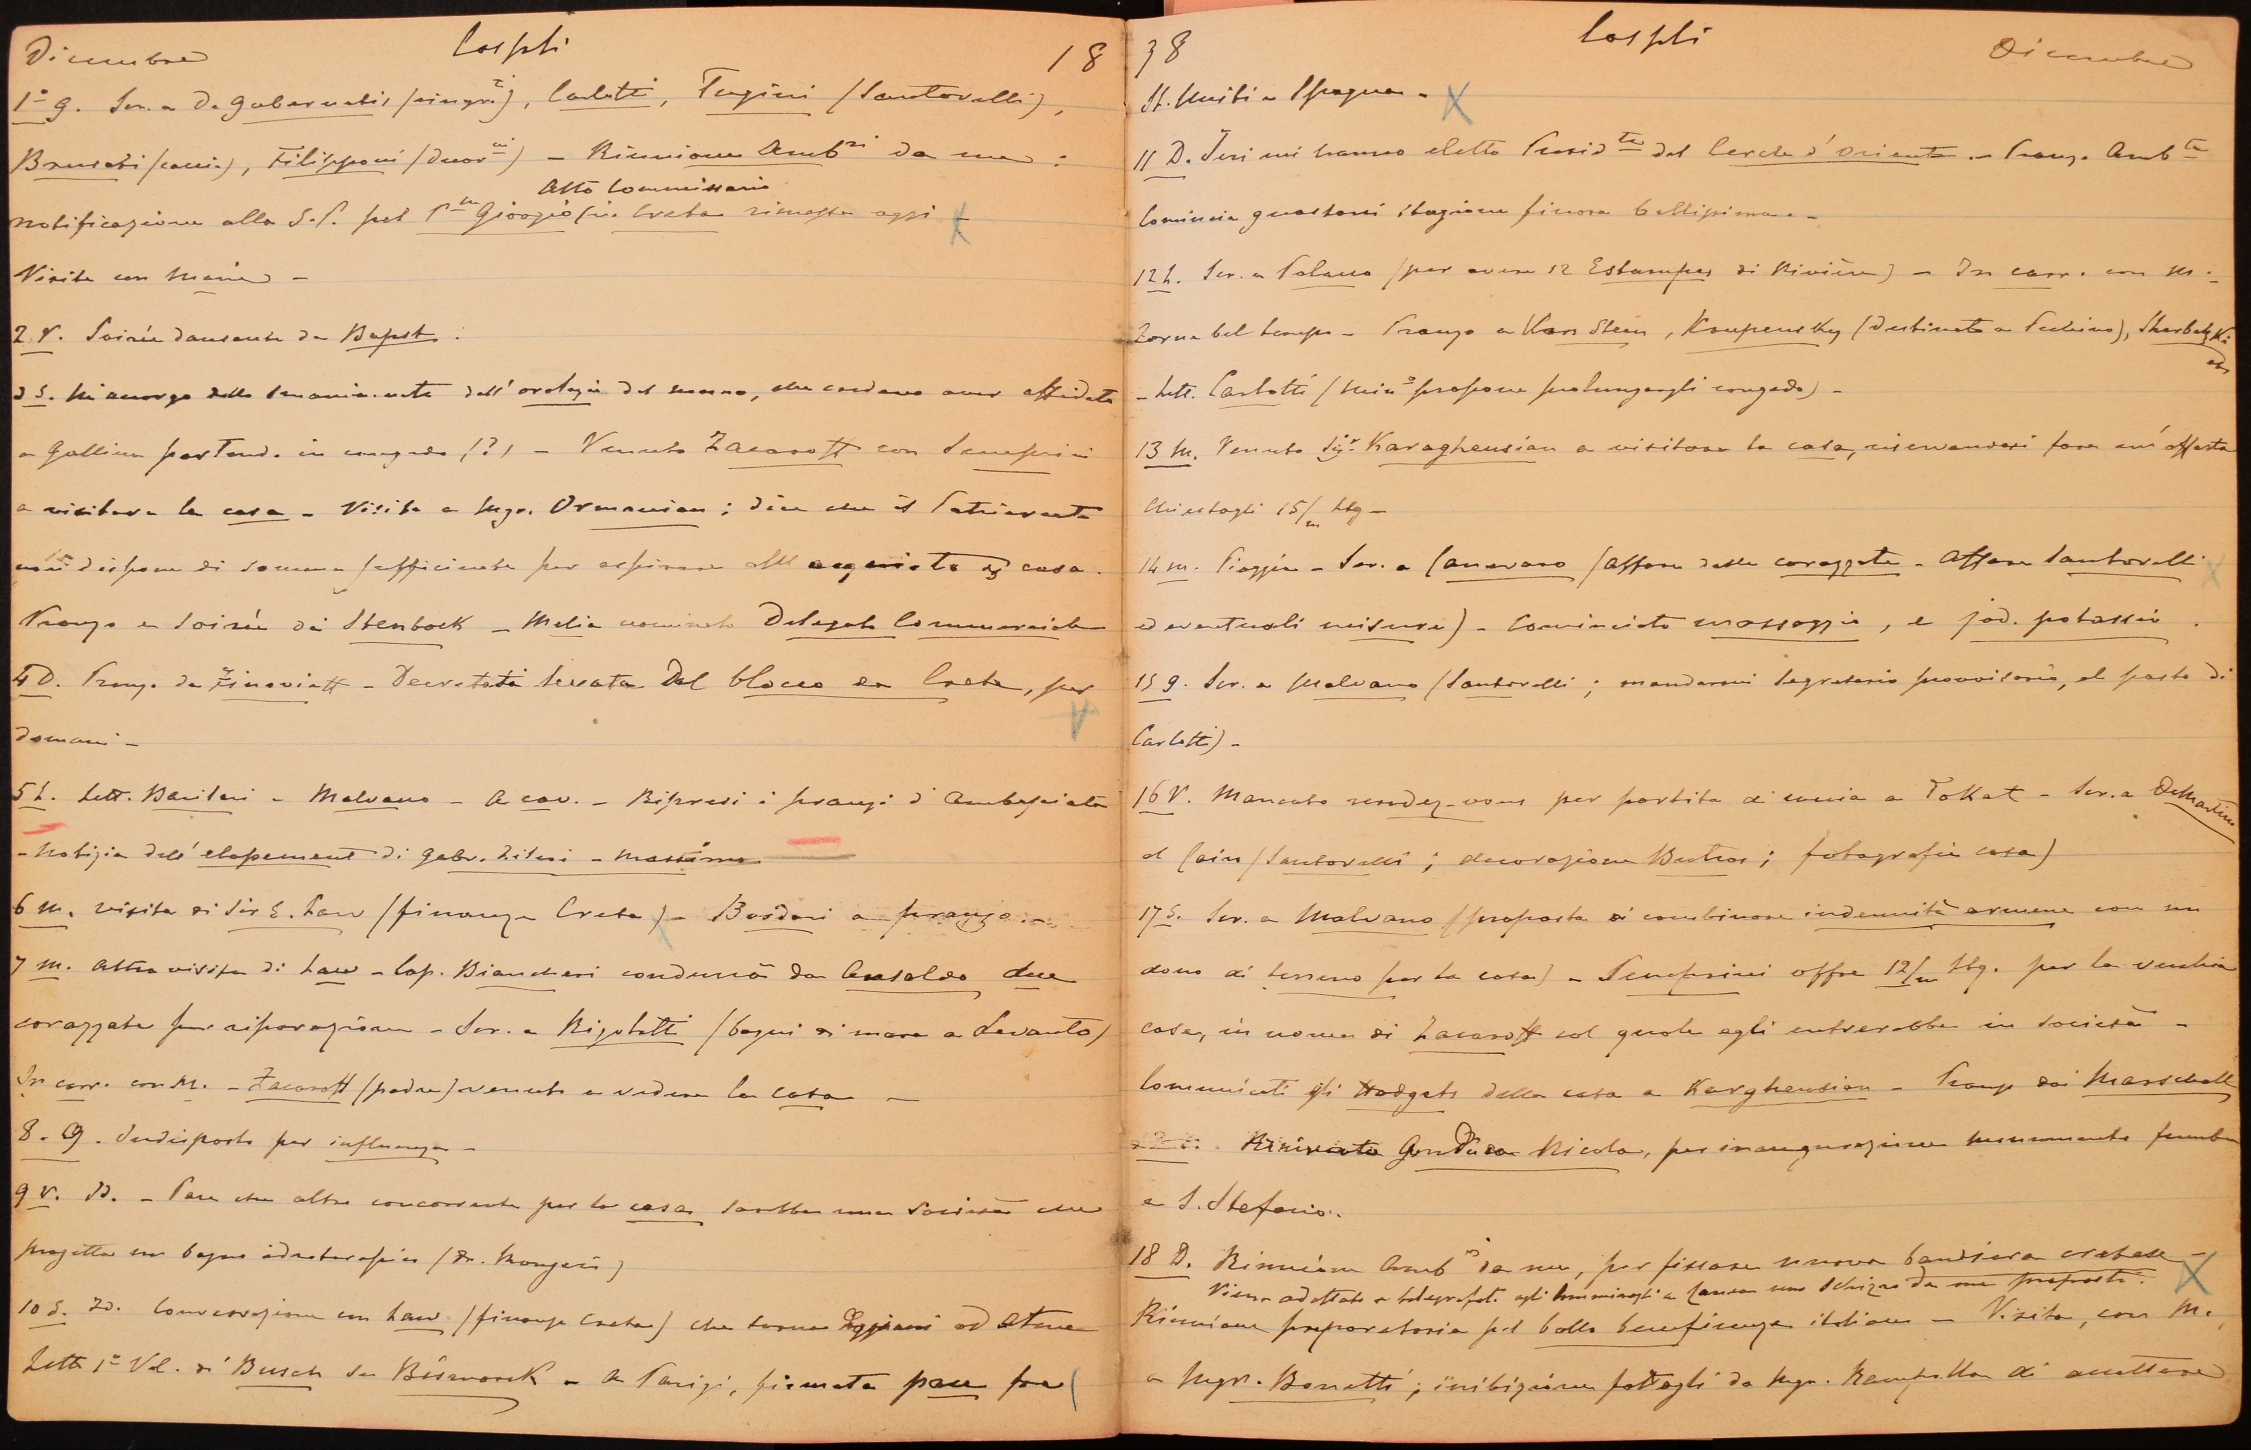 Dicembre Cospli 18
1º g. Scr. a De Gubernatis (ringrᶻⁱ), Carlotti, Tugini (Santorelli),
Brusati (caccia), Filipponi (onorⁿⁱ) - Riunione Ambʳⁱ da me:
Alto Commissario
notificazione alla S.P. pel Pᵉ Giorgio in Creta rimessa oggi -
Visite con Maria -
2 V. Soirée dansante da Bapst.
3 S. Mi accorgo della dell'orologio del nonno, che credevo aver affidato
a Gallina partendo in congedo (?) - Venuto Zacaroff con Semprini
a visitare la casa - Visita a Mgr. Ormanian; dice che il Patriarcato
non dispone di somma sufficiente per aspirare all'acquisto di casa.
Pranzo e soirée da Stenbock - Melia nominato Delegato Commerciale
4 D. Pranzo da Zinovieff - Decretata levata del blocco a Creta, per
domani -
5 L. Lett. Barilari - Malvano - A cav. - Ripresi i pranzi d'Ambasciata
- Notizia dell'elopement di Gabr. - Massimo
6 M. visita di Sir E. Law (finanza Creta) - Bosdari a pranzo.-
7 M. Altra visita di Law - Cap. Biancheri condurrà da Ansaldo due
corazzate per riparazione - Scr. a Rigoletti (bagni di mare a Levanto)
In carr. con M. - Zacaroff (padre) venuto a vedere la casa -
8. G. Indisposto per influenza -
9 V. Id. - Pare che altro concorrente per la casa sarebbe una Società che
progetta un bagno idroterapico (Dr. Mongeri)
10 S. Id. Conversazione con Law (finanze Creta) che torna oggi ad Atene
Letto 1º Vol. di Busch su Bismarck - A Parigi, firmata pace fra (
38 Cospli Dicembre
St. Uniti e Spagna -
11 D. Ieri mi hanno eletto Presidᵗᵉ del Cercle d'Orient. - Pranzo Ambᵗᵃ
Comincia guastarsi stagione finora bellissima -
12 L. Scr. a Polacco (per avere 12 Estampes di Rivière) - In carr. con M.
Torna bel tempo - Pranzo a , Kroupensky (destinato a Pechino), Sherbatzki
- Lett. Carlotti (Minº propone prolungargli congedo) -
13 M. Venuto Sigʳ Karagheusian a visitare la casa, riservandosi fare un'offerta
Chiestogli 15/m Ltq -
14 M. Pioggia - Scr. a Canevaro (affare delle corazzate - affare Santorelli
ed eventuali misure) - Cominciato massaggio, e jod. potassio.
15 G. Scr. a Malvano (Santorelli; mandarmi Segretario provvisorio, al posto di
Carlotti) -
16 V. Mancato rendez-vous per partita di caccia a Tokat - Scr. a DeMartino
al Cairo (Santorelli; decorazione Butros; fotografia casa)
17 S. Scr. a Malvano (proposta di combinare indennità armene con un
dono di terreno per la casa) - Semprini offre 12/m Ltq. per la vecchia
casa, in nome di Zacaroff col quale egli entrerebbe in società -
Comunicati gli Hodgets della casa a Karagheusian - Pranzo dai Marschall
Granduca Nicola, per inaugurazione monumento funebre
a S. Stefano.
18 D. Riunione Ambⁿⁱ da me, per fissare nuova bandiera cretese -
Viene adottato e telegrafato agli Ammiragli a Canea uno schizzo da me proposto.
Riunione preparatoria pel ballo beneficenza italiana - Visita, con M.,
a Mgr. Bonetti; inibizione fattagli da Mgr. Rampolla di accettare